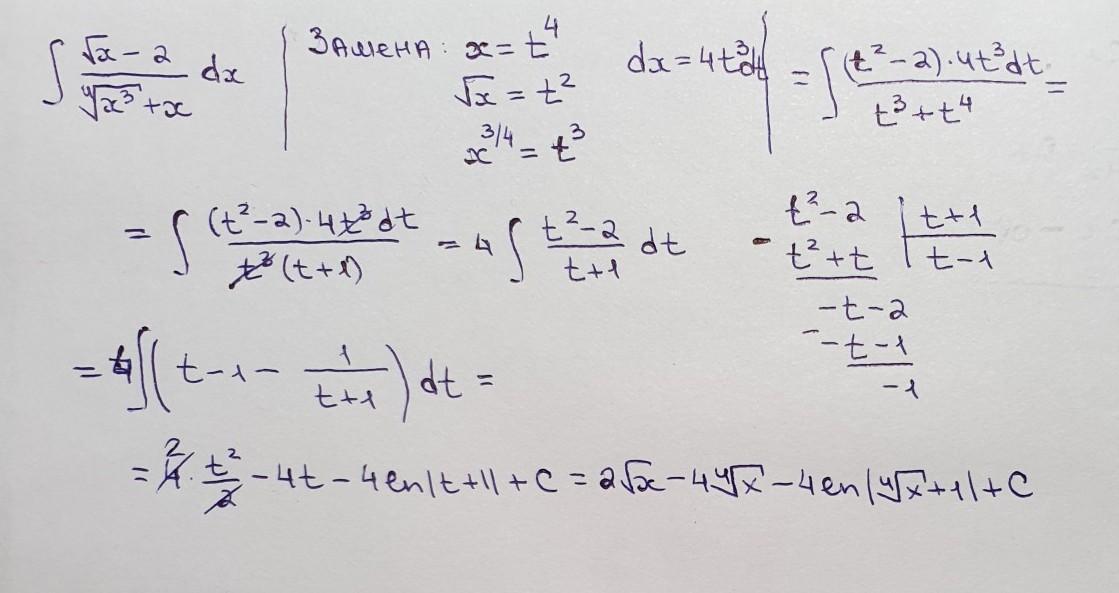 ∫ (√x − 2)/(⁴√x³ + x) dx | Замена: x = t⁴ dx = 4t³dt | = ∫ (t² − 2)·4t³dt/(t³ + t⁴) =
√x = t²
x^(3/4) = t³
= ∫ (t² − 2)·4t³dt/(t³(t + 1)) = 4 ∫ (t² − 2)/(t + 1) dt
t² − 2 | t + 1
− t² + t | t − 1
−t − 2
− −t − 1
−1
= 4∫(t − 1 − 1/(t + 1)) dt =
= 4· t²/2 − 4t − 4 ln|t + 1| + C = 2√x − 4⁴√x − 4 ln|⁴√x + 1| + C